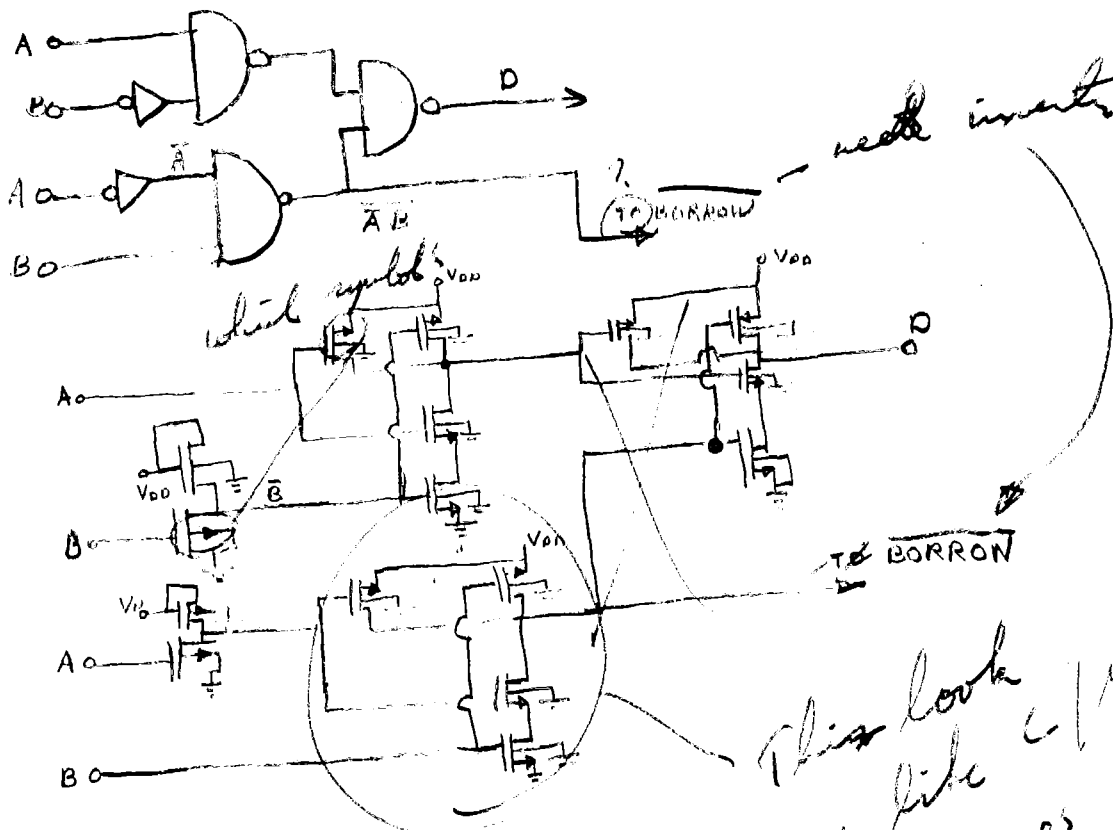 A
B
D
Ā
A
B
A̅B̅
?
TO BORROW
- needs inverter
which symbol?
VDD
VDD
D
A
VDD
B̅
B
TO BORROW
VDD
VDD
A
B
This look
like